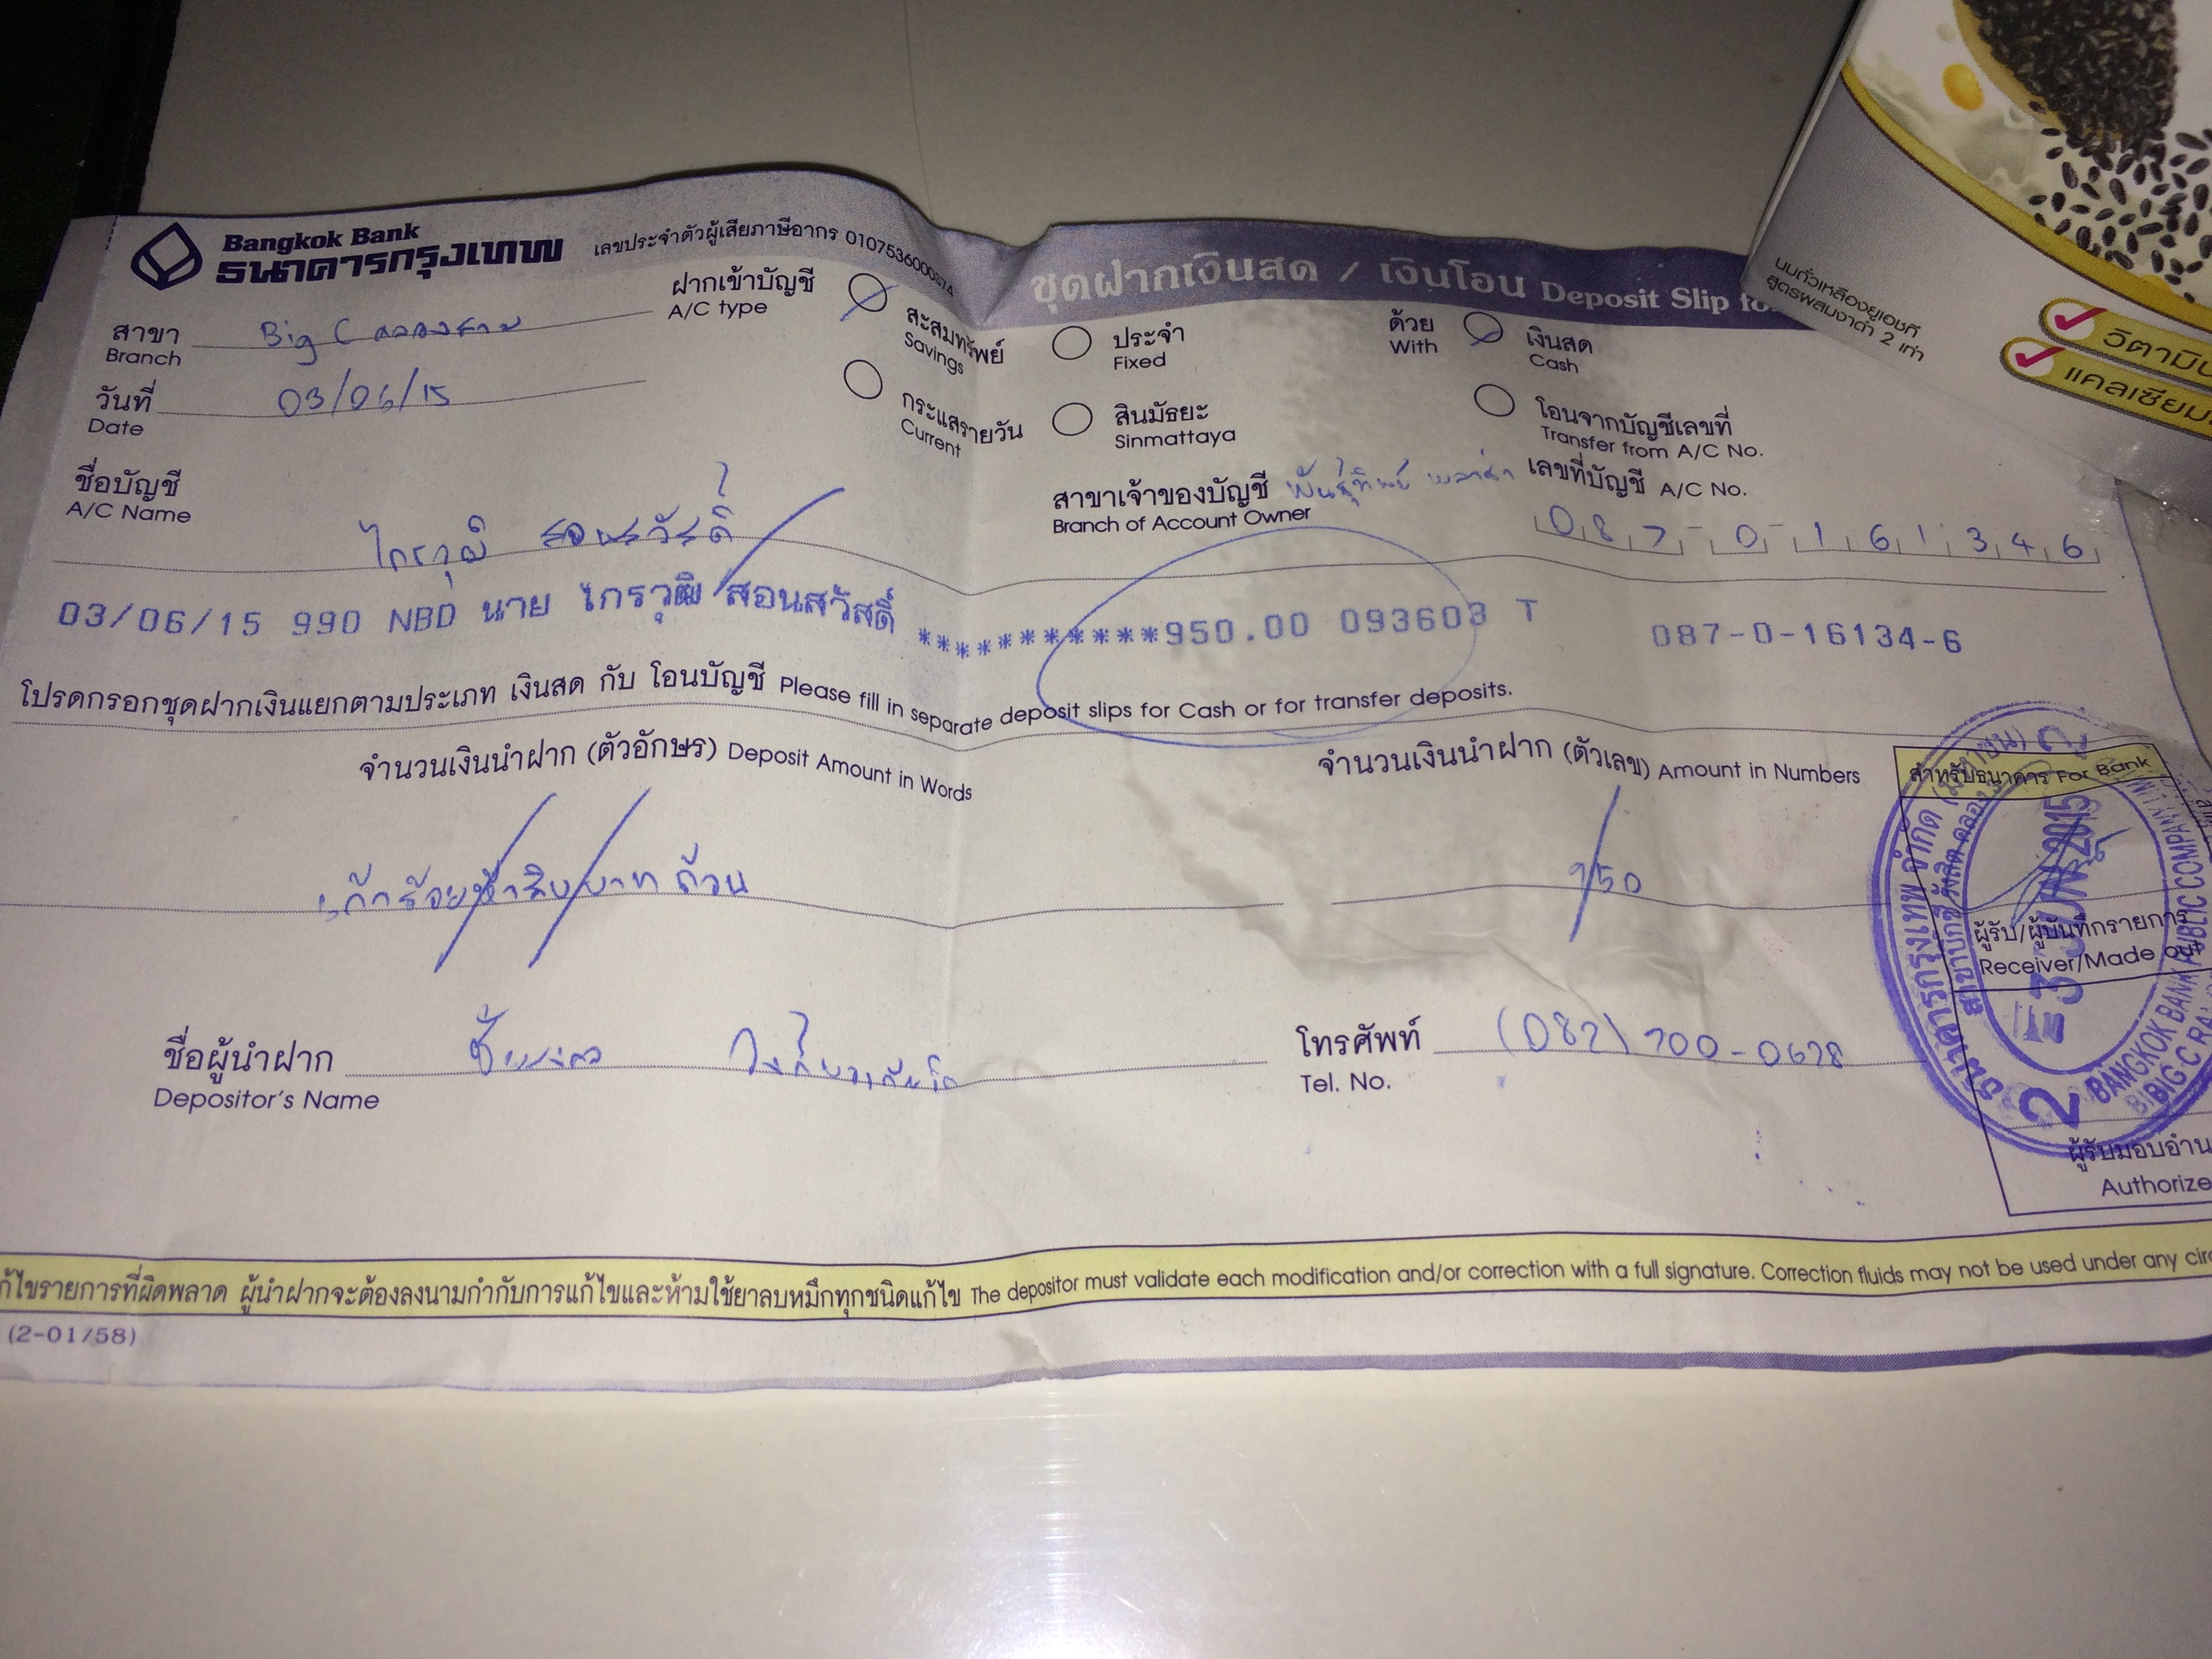 Bangkok Bank
ธนาคารกรุงเทพ
เลขประจำตัวผู้เสียภาษีอากร 0107536000374
ชุดฝากเงินสด / เงินโอน Deposit Slip fo
สาขา Big C
Branch
ฝากเข้าบัญชี
A/C type
สะสมทรัพย์
Savings
ประจำ
Fixed
ด้วย
With
เงินสด
Cash
วันที่ 03/06/15
Date
กระแสรายวัน
Current
สินมัธยะ
Sinmattaya
โอนจากบัญชีเลขที่
Transfer from A/C No.
ชื่อบัญชี
A/C Name
ไกรวุฒิ สอนสวัสดิ์
สาขาเจ้าของบัญชี พันธุ์ทิพย์ พลาซ่า
Branch of Account Owner
เลขที่บัญชี A/C No.
087-0-161346
03/06/15 990 NBD นาย ไกรวุฒิ สอนสวัสดิ์ ************950.00 093603 T 087-0-16134-6
โปรดกรอกชุดฝากเงินแยกตามประเภท เงินสด กับ โอนบัญชี Please fill in separate deposit slips for Cash or for transfer deposits.
จำนวนเงินนำฝาก (ตัวอักษร) Deposit Amount in Words
จำนวนเงินนำฝาก (ตัวเลข) Amount in Numbers
สำหรับธนาคาร For Bank
เก้าร้อยห้าสิบบาทถ้วน
950
ผู้รับ/ผู้บันทึกรายการ
Receiver/Made out
ชื่อผู้นำฝาก
Depositor's Name
โทรศัพท์ (082) 700-0628
Tel. No.
ธนาคารกรุงเทพ จำกัด (มหาชน)
-3 JUN 2015
2
BANGKOK BANK PUBLIC COMPANY
ผู้รับมอบอำน
Authorize
ก้ไขรายการที่ผิดพลาด ผู้นำฝากจะต้องลงนามกำกับการแก้ไขและห้ามใช้ยาลบหมึกทุกชนิดแก้ไข The depositor must validate each modification and/or correction with a full signature. Correction fluids may not be used under any cir
(2-01/58)
นมถั่วเหลืองยูเอชที
สูตรผสมงาดำ 2 เท่า
วิตามิน
แคลเซียม